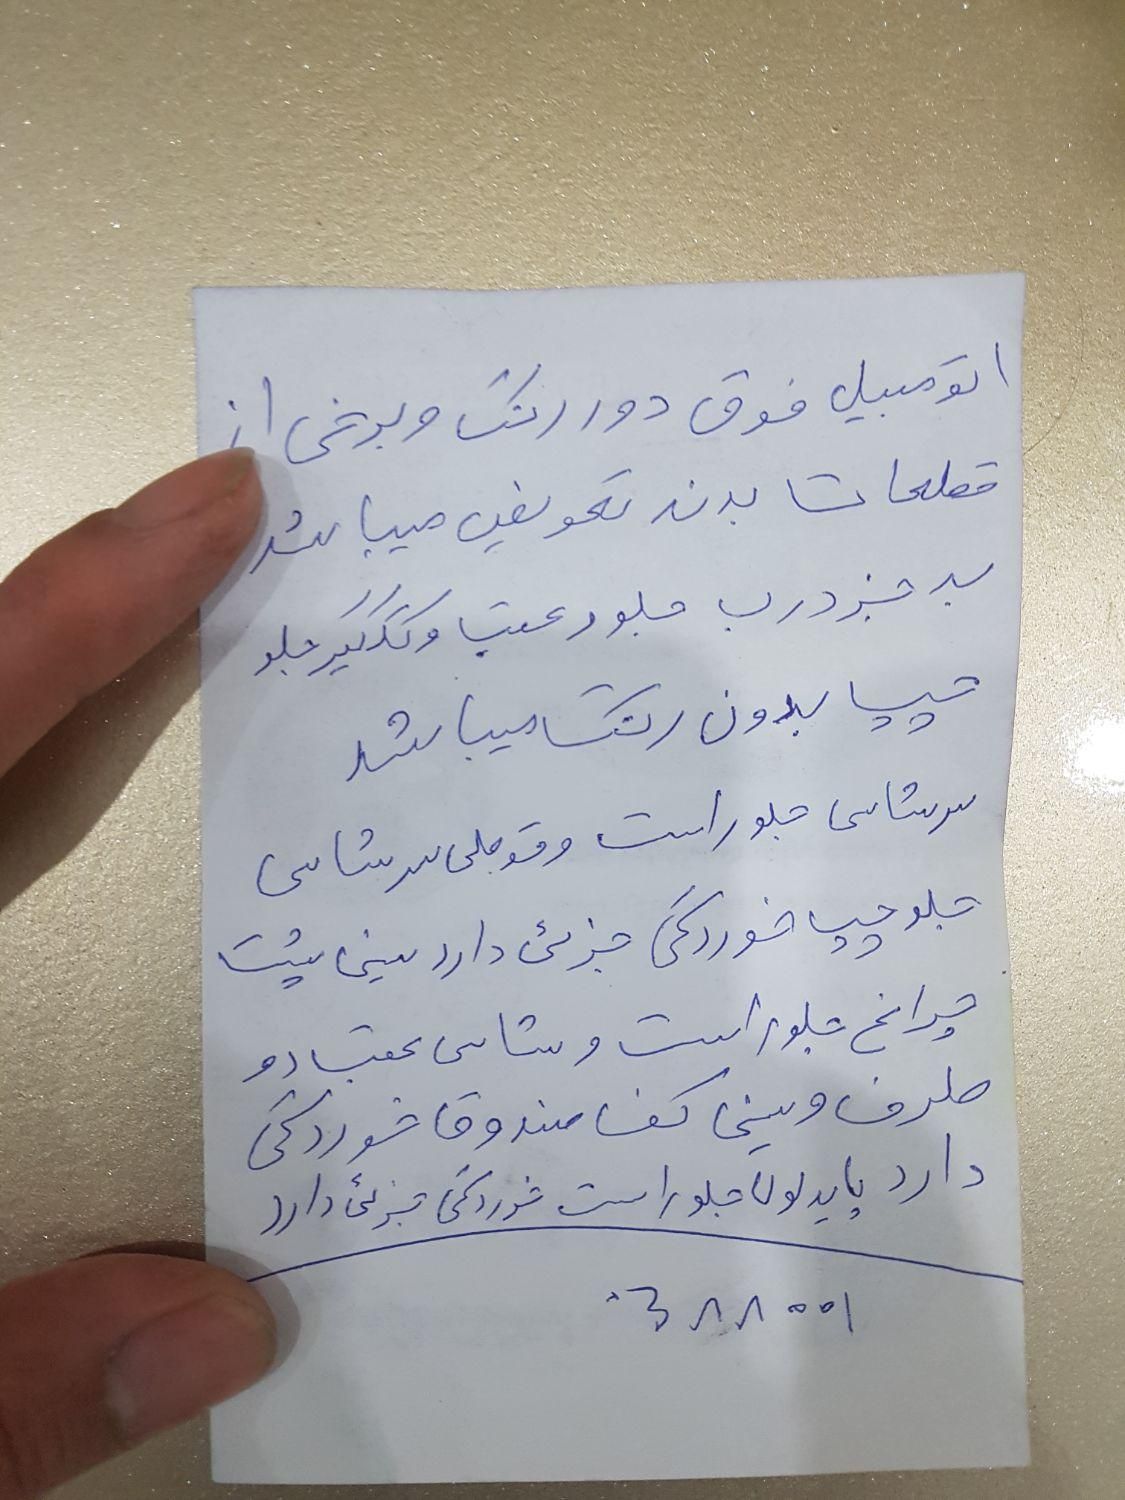 اتومبیل فوق دور رنگ و برخی از
قطعات بدنه تعویض میباشد
به جز درب جلو و عقب و گلگیر جلو
چپ بدون رنگ میباشد
سرشاسی جلو راست و قوطی سرشاسی
جلو چپ خوردگی جزئی دارد سینی پشت
چراغ جلو راست و شاسی عقب دو
طرف و سینی کف صندوق خوردگی
دارد پایه لولا جلو راست خوردگی جزئی دارد